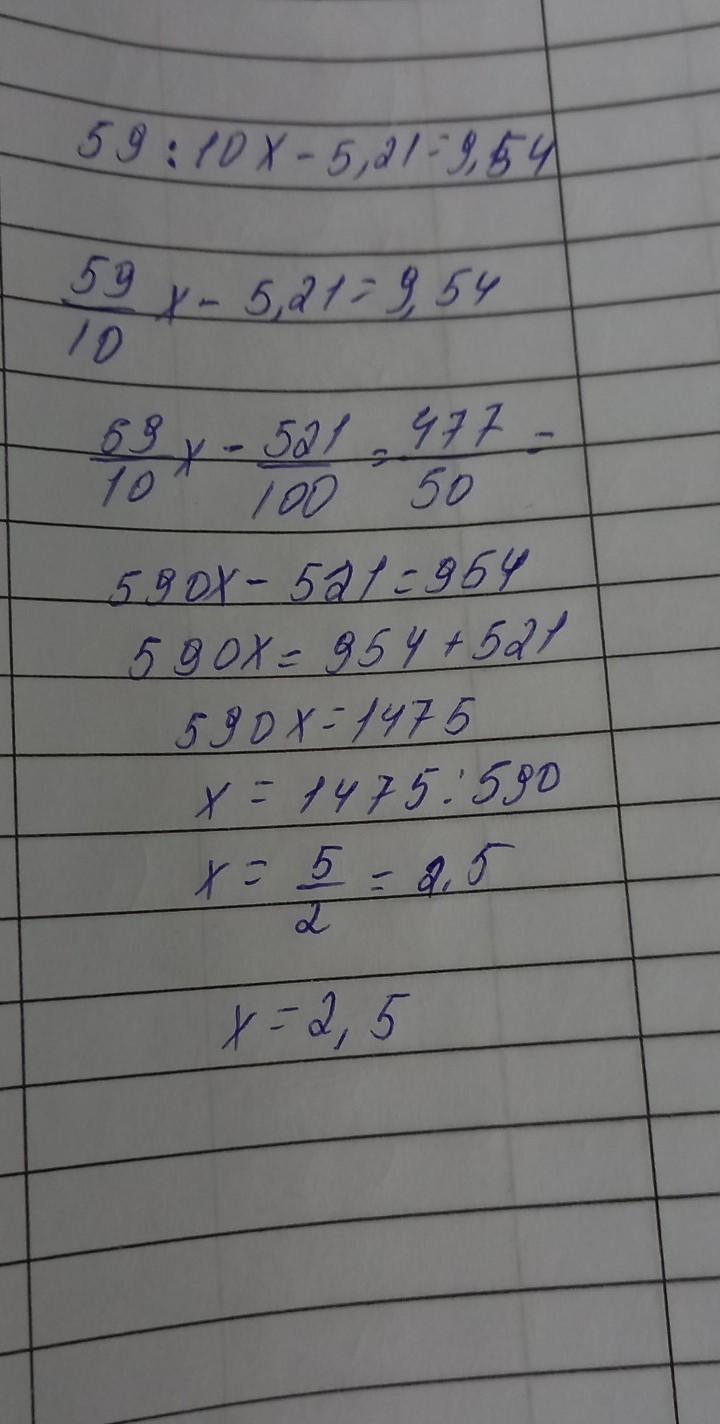 59:10x-5,21=9,54
59/10 x - 5,21=9,54
59/10 x - 521/100 = 477/50 =
590x - 521=954
590x=954+521
590x=1475
x = 1475:590
x = 5/2 = 2,5
x=2,5